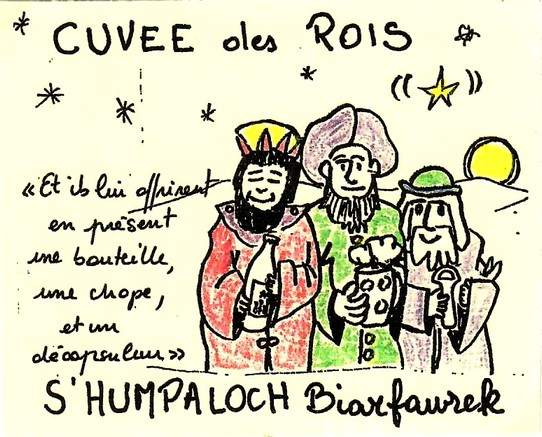 CUVEE des ROIS
« Et ils lui offrirent
en présent
une bouteille,
une chope,
et un
décapsuleur »
S'HUMPALOCH Biarfaurek